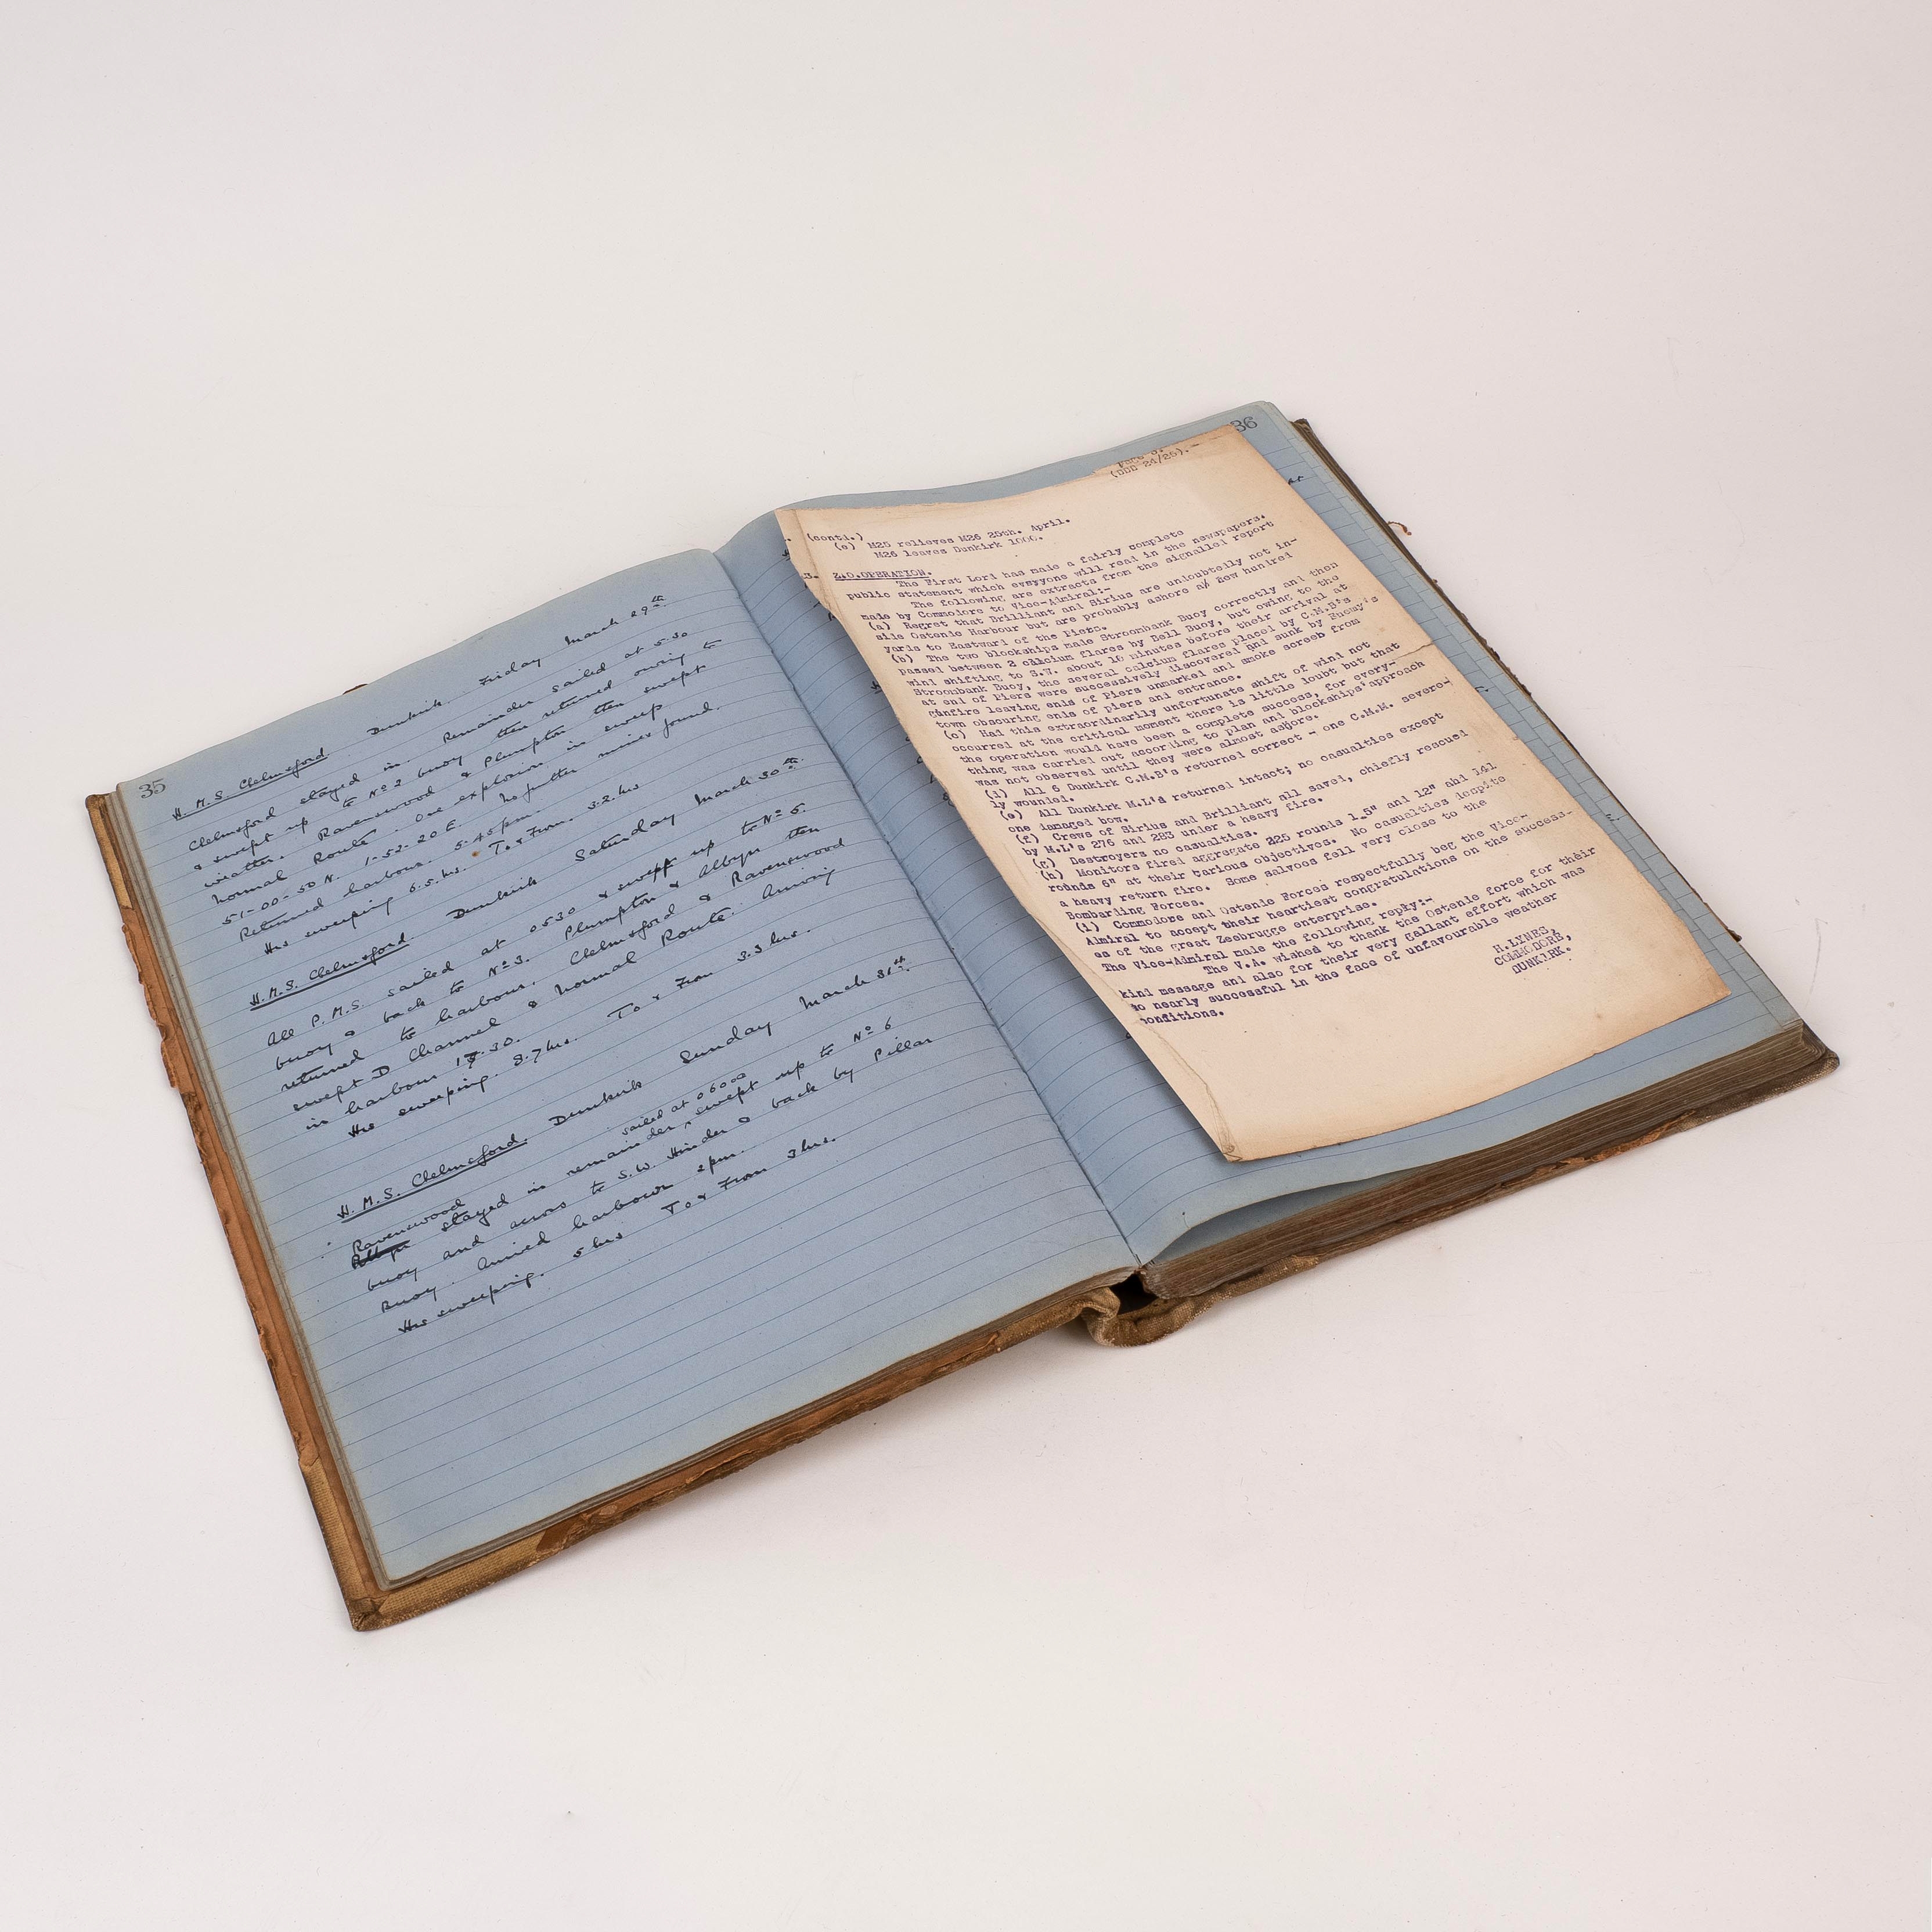 35
H.M.S. Chelmsford. Dunkirk. Friday March 29th.
Chelmsford stayed in. Remainder sailed at 5.30
& swept up to No 2 buoy then returned owing to
weather. Ravenswood & Plumpton then swept
normal Route. One explosion in sweep
51-00-50 N. 1-52-20 E. No further mines found.
Returned harbour. 5.45 pm.
Hrs sweeping 6.5. hrs. To & From. 3.2. hrs
H.M.S. Chelmsford. Dunkirk Saturday March 30th.
All P.M.S. sailed at 0530 & swept up to No 6.
buoy & back to No 3. Plumpton & Albyn then
returned to harbour. Chelmsford & Ravenswood
swept D Channel & normal Route. Arriving
in harbour 17.30.
Hrs sweeping. 8.7 hrs. To & From 3.3 hrs.
H.M.S. Chelmsford. Dunkirk Sunday March 31st.
Ravenswood sailed at 0600
stayed in remainder, swept up to No 6
buoy and across to S.W. Hinder & back by Pillar
Buoy. Arrived harbour 2 pm.
Hrs sweeping. 5 hrs To & From 3 hrs.
36
(DDD 24/25).-
(contd.)
(e) M25 relieves M26 25th. April.
M26 leaves Dunkirk 1000.
3. Z.O.OPERATION.
The First Lord has made a fairly complete
public statement which eveyyone will read in the newspapers.
The following are extracts from the signalled report
made by Commodore to Vice-Admiral:-
(a) Regret that Brilliant and Sirius are undoubtedly not in-
side Ostende Harbour but are probably ashore a few hundred
yards to Eastward of the Piers.
(b) The two blockships made Stroombank Buoy correctly and then
passed between 2 calcium flares by Bell Buoy, but owing to the
wind shifting to S.W. about 10 minutes before their arrival at
Stroombank Buoy, the several calcium flares placed by C.M.B's
at end of Piers were successively discovered and sunk by Enemy's
gunfire leaving ends of Piers unmarked and smoke screen from
town obscuring ends of piers and entrance.
(c) Had this extraordinarily unfortunate shift of wind not
occurred at the critical moment there is little doubt but that
the operation would have been a complete success, for every-
thing was carried out according to plan and blockships'approach
was not observed until they were almost ashore.
(d) All 6 Dunkirk C.M.B's returned correct - one C.M.M. severe-
ly wounded.
(e) All Dunkirk M.L's returned intact; no casualties except
one damaged bow.
(f) Crews of Sirius and Brilliant all saved, chiefly rescued
by M.L's 276 and 283 under a heavy fire.
(g) Destroyers no casualties.
(h) Monitors fired aggregate 225 rounds 1.5" and 12" and 141
rounds 6" at their various objectives. No casualties despite
a heavy return fire. Some salvoes fell very close to the
Bombarding Forces.
(i) Commodore and Ostende Forces respectfully beg the Vice-
Admiral to accept their heartiest congratulations on the success-
es of the great Zeebrugge enterprise.
The Vice-Admiral made the following reply:-
The V.A. wished to thank the Ostende force for their
kind message and also for their very gallant effort which was
so nearly successful in the face of unfavourable weather
conditions.
H.LYNES,
COMMODORE,
DUNKIRK.